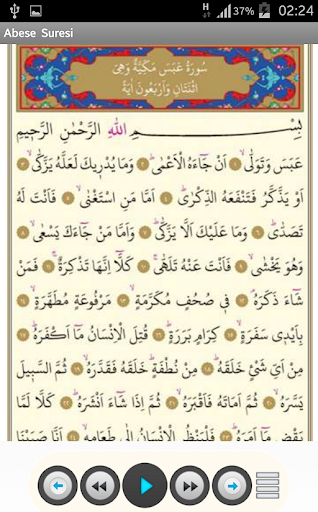 H 37% 02:24
Abese Suresi
سُورَةُ عَبَسَ مَكِّيَّةٌ وَهِيَ
اثْنَتَانِ وَاَرْبَعُونَ اٰيَةً
بِسْــــمِ اللّٰهِ الرَّحْمٰنِ الرَّحٖيمِ
عَبَسَ وَتَوَلّٰىۙ ١ اَنْ جَٓاءَهُ الْاَعْمٰىؕ ٢ وَمَا يُدْرٖيكَ لَعَلَّهُ يَزَّكّٰىۙ ٣
اَوْ يَذَّكَّرُ فَتَنْفَعَهُ الذِّكْرٰىؕ ٤ اَمَّا مَنِ اسْتَغْنٰىۙ ٥ فَاَنْتَ لَهُ
تَصَدّٰىؕ ٦ وَمَا عَلَيْكَ اَلَّا يَزَّكّٰىؕ ٧ وَاَمَّا مَنْ جَٓاءَكَ يَسْعٰىۙ ٨
وَهُوَ يَخْشٰىۙ ٩ فَاَنْتَ عَنْهُ تَلَهّٰىۚ ١٠ كَلَّٓا اِنَّهَا تَذْكِرَةٌۚ ١١ فَمَنْ
شَٓاءَ ذَكَرَهُۘ ١٢ فٖي صُحُفٍ مُكَرَّمَةٍۙ ١٣ مَرْفُوعَةٍ مُطَهَّرَةٍۙ ١٤
بِاَيْدٖي سَفَرَةٍۙ ١٥ كِرَامٍ بَرَرَةٍؕ ١٦ قُتِلَ الْاِنْسَانُ مَٓا اَكْفَرَهُؕ ١٧
مِنْ اَيِّ شَيْءٍ خَلَقَهُؕ ١٨ مِنْ نُطْفَةٍؕ خَلَقَهُ فَقَدَّرَهُۙ ١٩ ثُمَّ السَّبٖيلَ
يَسَّرَهُۙ ٢٠ ثُمَّ اَمَاتَهُ فَاَقْبَرَهُۙ ٢١ ثُمَّ اِذَا شَٓاءَ اَنْشَرَهُؕ ٢٢ كَلَّا لَمَّا
يَقْضِ مَٓا اَمَرَهُؕ ٢٣ فَلْيَنْظُرِ الْاِنْسَانُ اِلٰى طَعَامِهٖۙ ٢٤ اَنَّا صَبَبْنَا